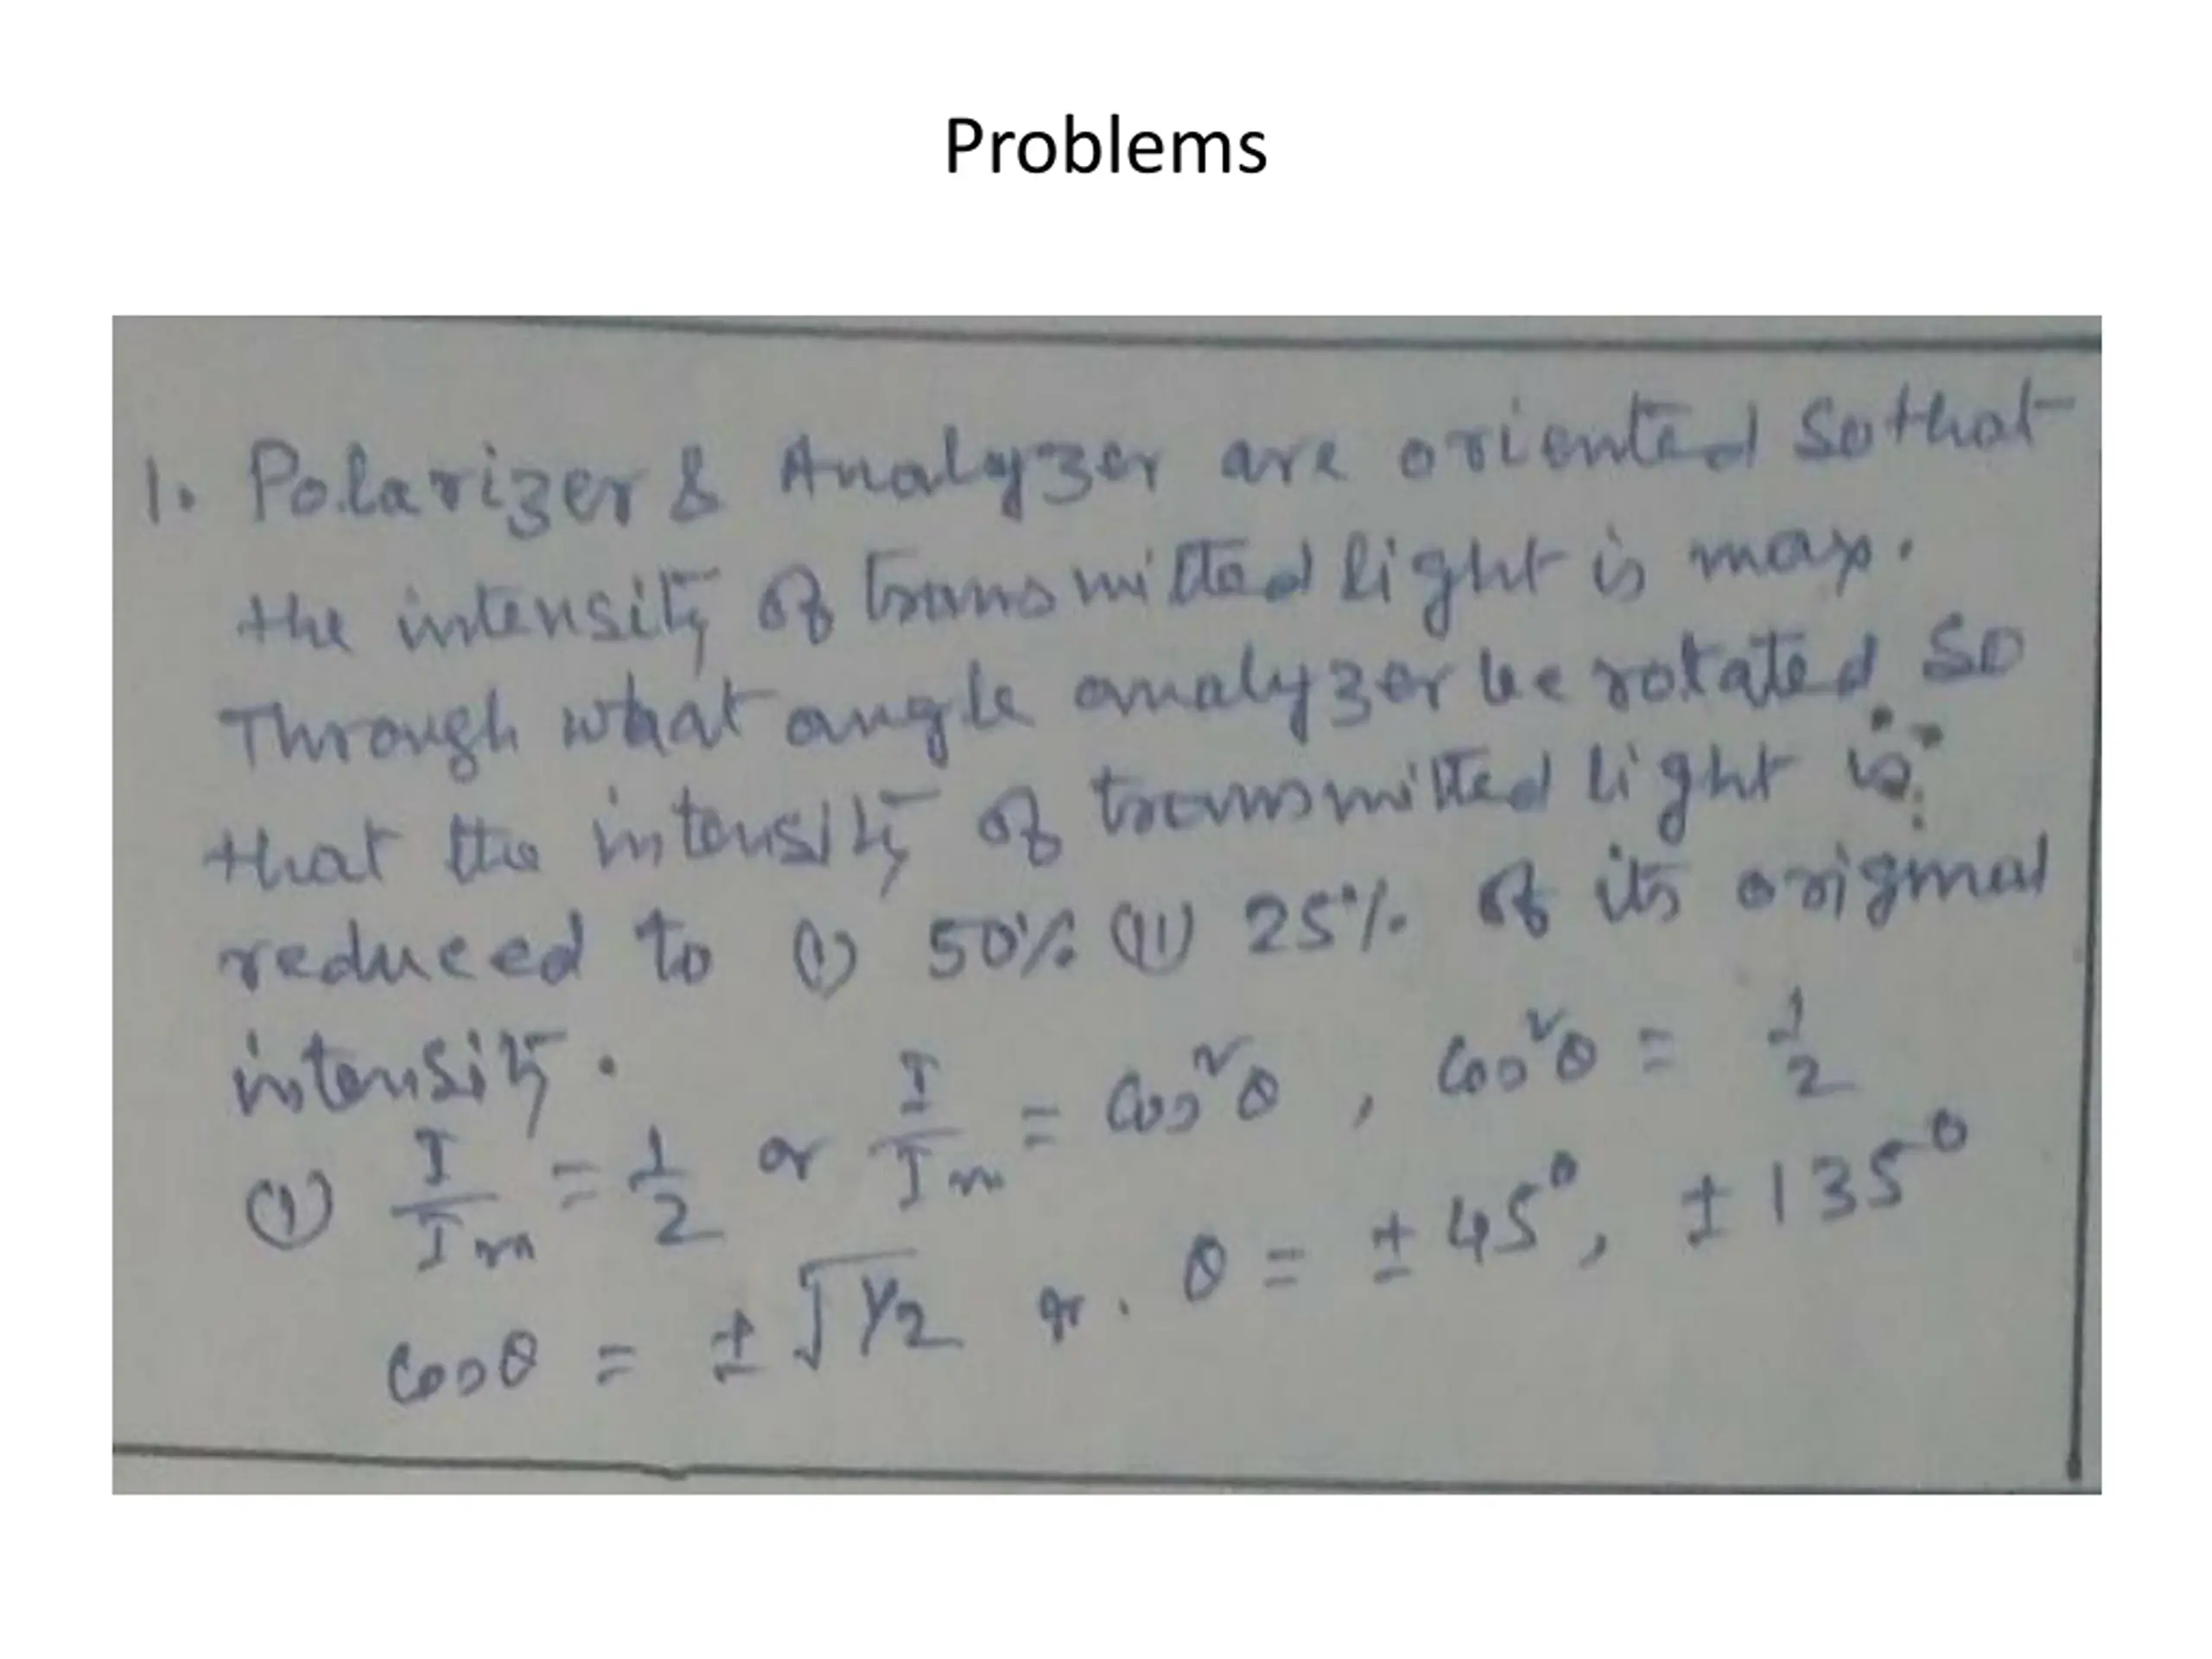 Problems
1. Polarizer & Analyzer are oriented so that
the intensity of transmitted light is max.
Through what angle analyzer be rotated so
that the intensity of transmitted light is
reduced to (i) 50% (ii) 25% of its original
intensity.
(i) I/Im = 1/2 or I/Im = cos²θ, cos²θ = 1/2
cosθ = ±√1/2 or. θ = ±45⁰, ±135⁰